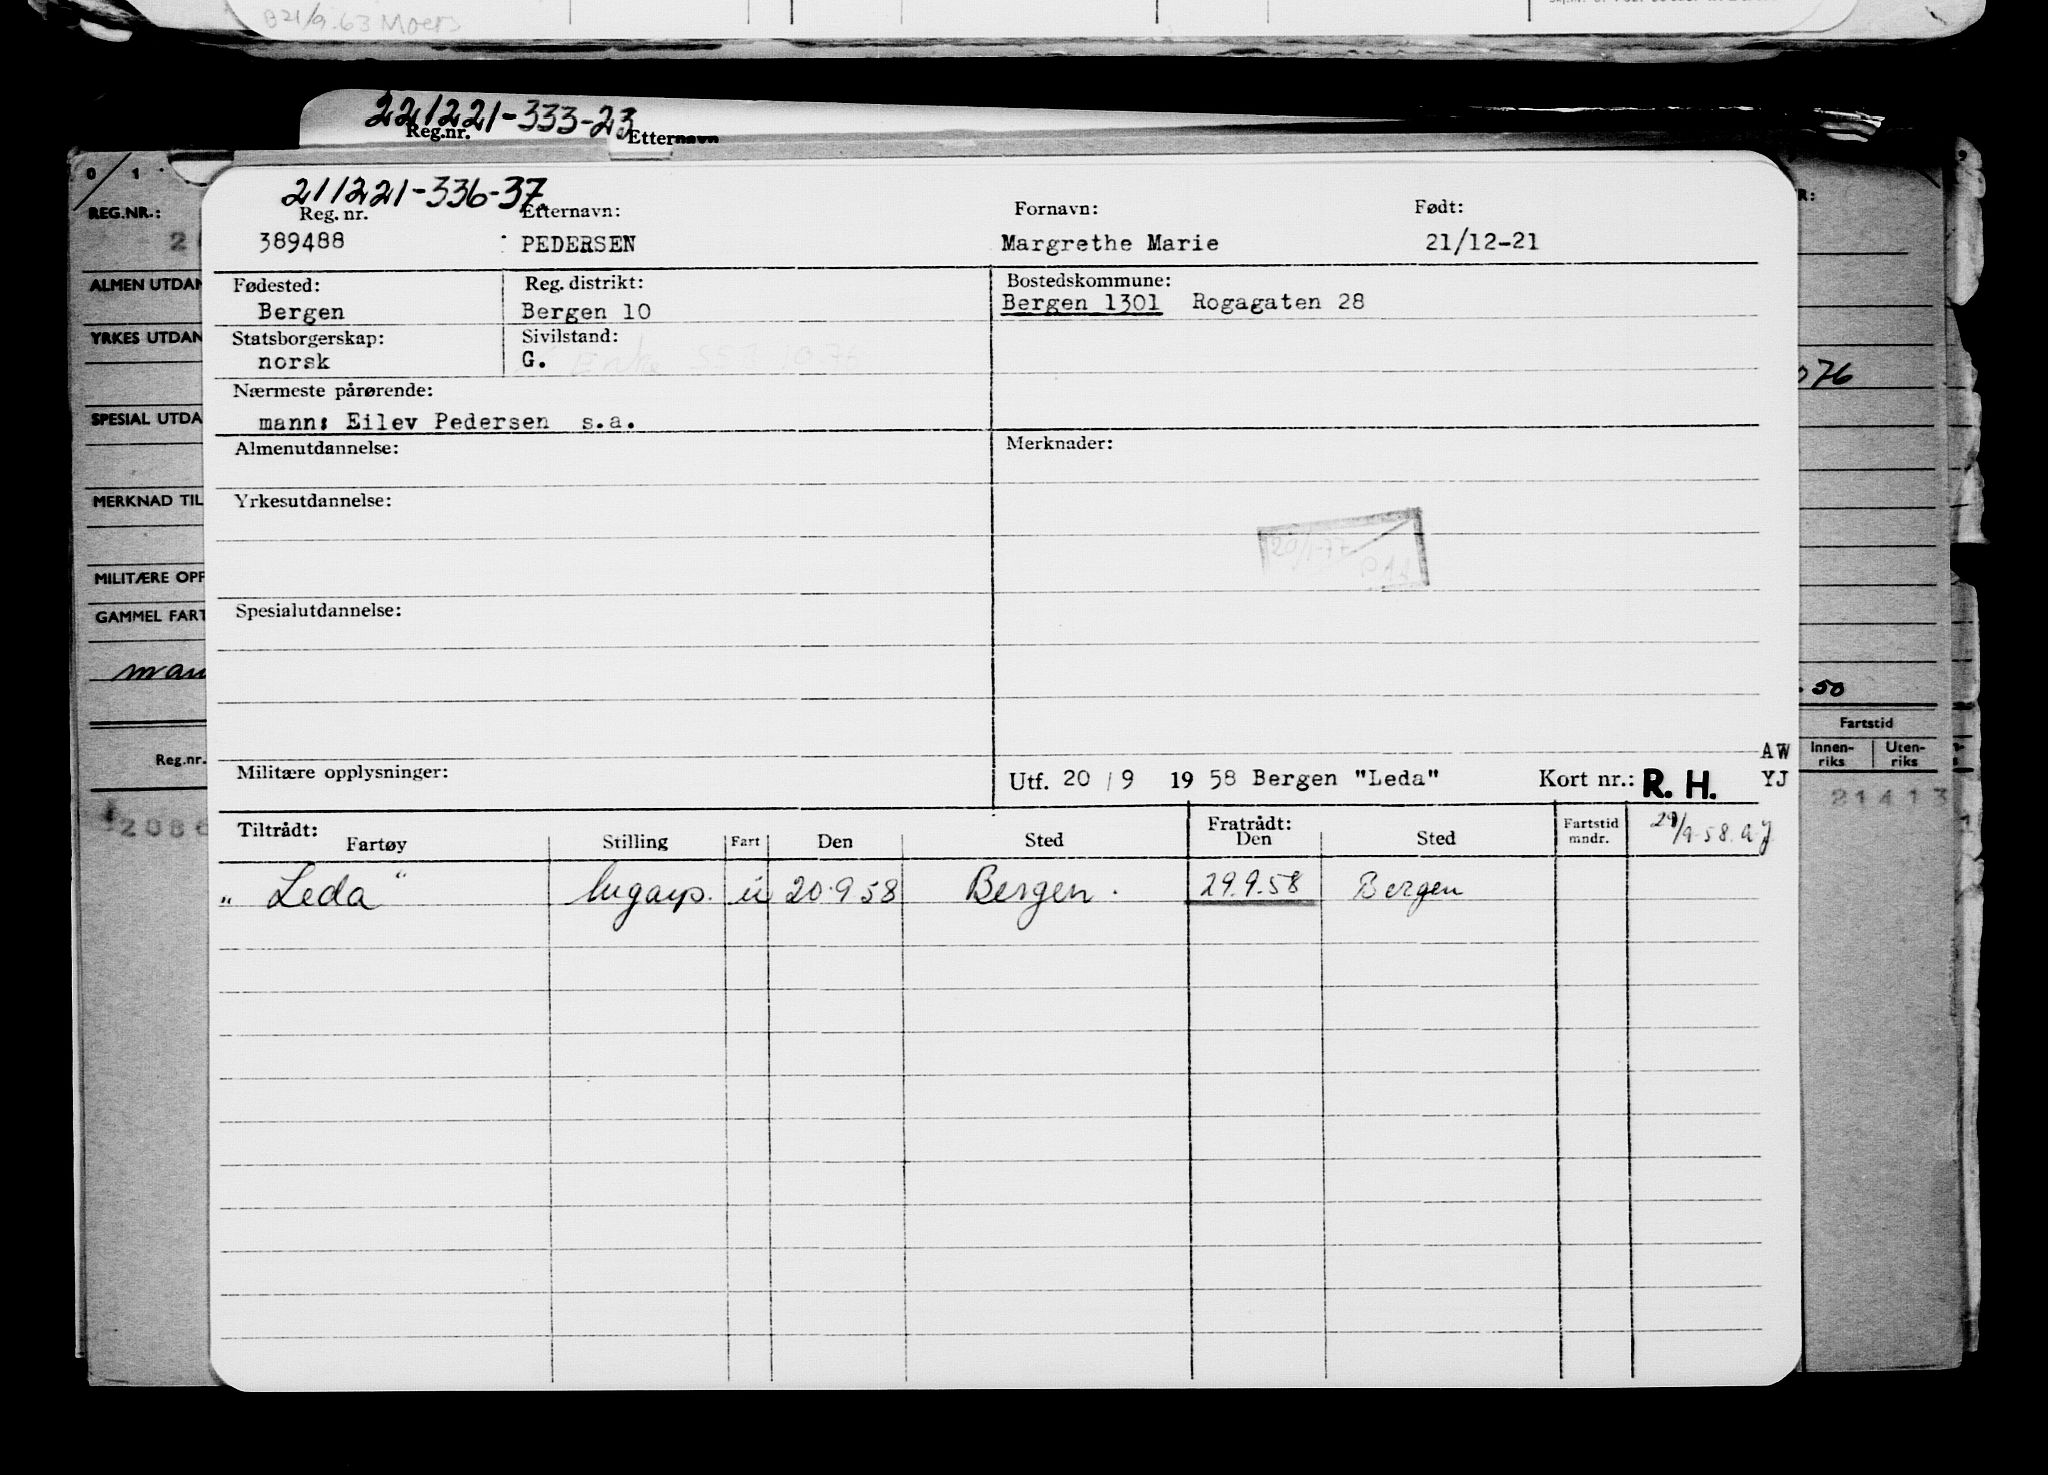 B21/9.63 Moers
221221-333-23
Reg.nr. Etternavn
0 1
REG.NR.:
ALMEN UTDAN
YRKES UTDAN
SPESIAL UTDA
MERKNAD TIL
MILITÆRE OPP
GAMMEL FART
Reg.nr.
2086
R:
076
. 50
Fartstid
Innen-
riks
Uten-
riks
21413
211221-336-37
Reg. nr. Etternavn: Fornavn: Født:
389488 PEDERSEN Margrethe Marie 21/12-21
Fødested: Reg. distrikt: Bostedskommune:
Bergen Bergen 10 Bergen 1301 Rogagaten 28
Statsborgerskap: Sivilstand:
norsk G.
Nærmeste pårørende:
mann: Eilev Pedersen s.a.
Almenutdannelse: Merknader:
Yrkesutdannelse:
20/1-77
Spesialutdannelse:
AW
Militære opplysninger: Utf. 20 / 9 19 58 Bergen "Leda" Kort nr.: R. H. YJ
Tiltrådt: Fratrådt: Fartstid 29/9-58. a.J
Fartøy Stilling Fart Den Sted Den Sted mndr.
"Leda" lugarp. u 20.9 58 Bergen. 29.9.58 Bergen